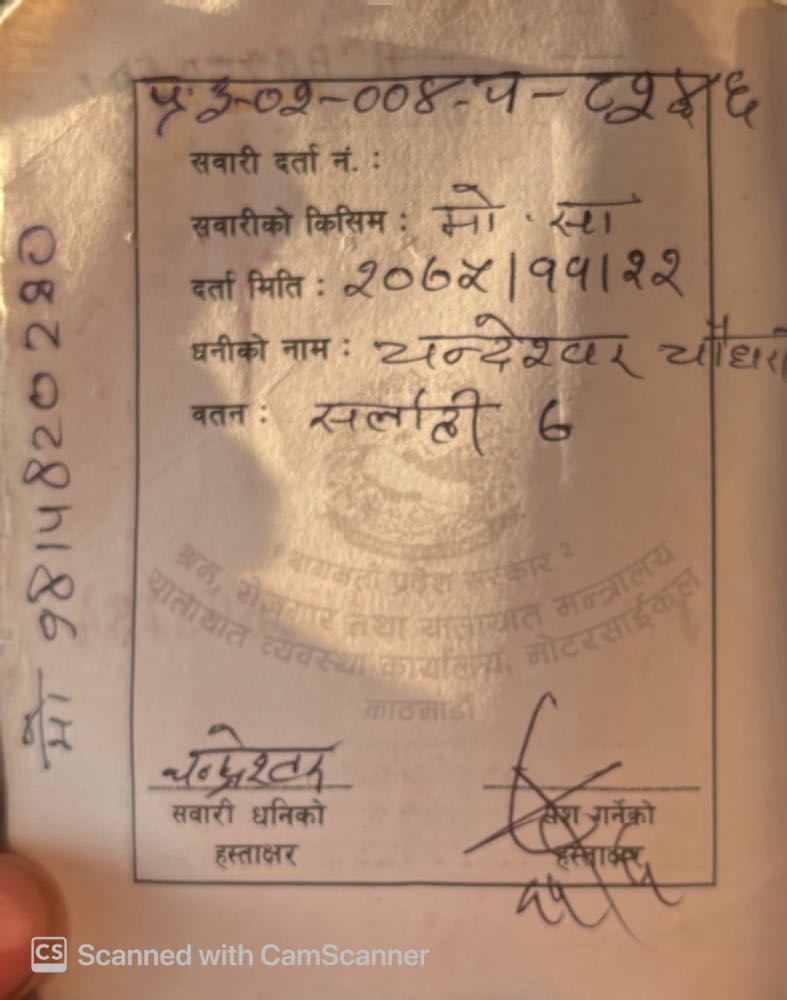 प्र.३-०२-००४-प-८९५६
सवारी दर्ता नं. :
सवारीको किसिम : मो. सा
दर्ता मिति : २०७५|११|२२
धनीको नाम : चन्देश्वर चौधरी
वतन : सर्लाही ७
मो 9814820280
बागमती प्रदेश सरकार
श्रम, रोजगार तथा यातायात मन्त्रालय
यातायात व्यवस्था कार्यालय, मोटरसाईकल
काठमाडौं
सवारी धनिको
हस्ताक्षर
पेश गर्नेको
हस्ताक्षर
CS Scanned with CamScanner